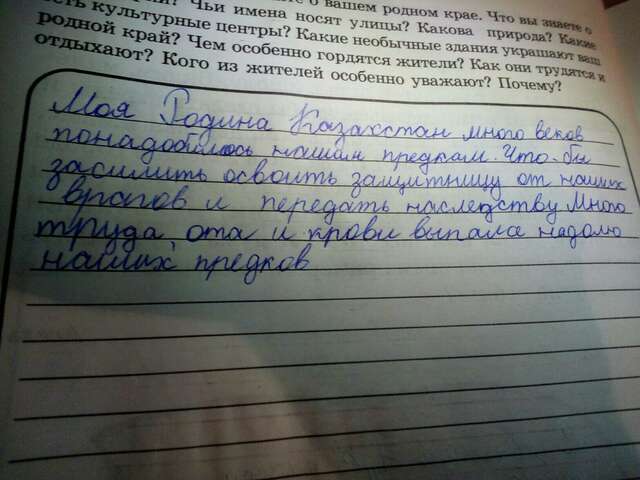 те о вашем родном крае. Что вы знаете о
Чьи имена носят улицы? Какова природа? Какие
есть культурные центры? Какие необычные здания украшают ваш
родной край? Чем особенно гордятся жители? Как они трудятся и
отдыхают? Кого из жителей особенно уважают? Почему?
Моя Родина Казахстан много веков
понадобилось нашам предкам. Что-бы
засилить освоить защитницу от наших
врагов и передать наследству Много
труда, ота и крови выпала надолю
наших предков